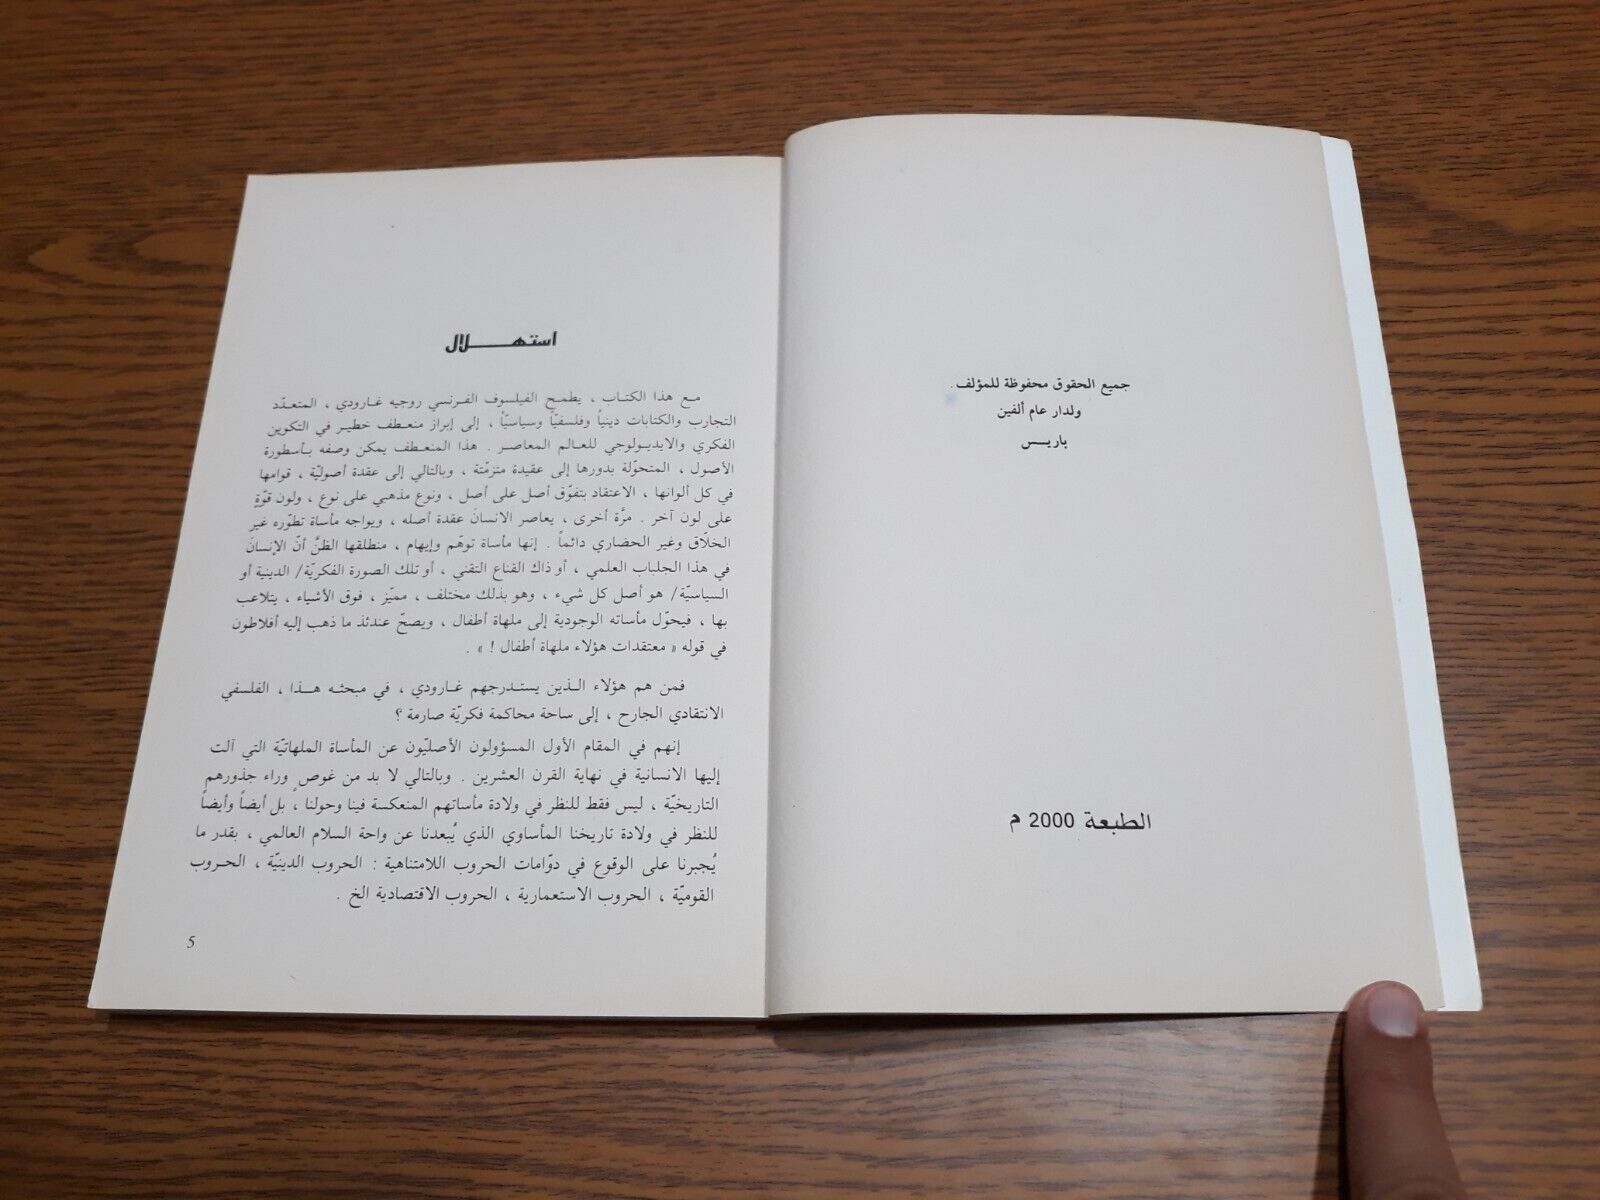 جميع الحقوق محفوظة للمؤلف .
ولدار عام ألفين
باريــس
الطبعة 2000 م
استهـــلال
مـع هذا الكتـاب ، يطمـح الفيلسوف الفـرنسي روجيه غـارودي ، المتعدّد
التجارب والكتابات دينياً وفلسفيّاً وسياسيّاً ، إلى إبراز منعـطف خطير في التكوين
الفكري والايديـولوجي للعـالم المعـاصر . هذا المنعـطف يمكن وصفه بـأسطورة
الأصول ، المتحوّلة بدورها إلى عقيدة متزمّتة ، وبالتالي إلى عقدة أصوليّة ، قوامها
في كل ألوانها ، الاعتقاد بتفوّق أصل على أصل ، ونوع مذهبي على نوع ، ولون قوّةٍ
على لون آخر . مرَّة أخرى ، يعاصر الانسانَ عقدة أصله ، ويواجه مأساة تطوّره غير
الخلّاق وغير الحضاري دائماً . إنها مأساة توهّم وإيهام ، منطلقها الظنُّ أنّ الإنسانَ
في هذا الجلباب العلمي ، أو ذاك القناع التقني ، أو تلك الصورة الفكريّة/ الدينية أو
السياسيّة/ هو أصل كل شيء ، وهو بذلك مختلف ، مميّز ، فوق الأشياء ، يتلاعب
بها ، فيحوّل مأساته الوجودية إلى ملهاة أطفال ، ويصحّ عندئذ ما ذهب إليه أفلاطون
في قوله « معتقدات هؤلاء ملهاة أطفال ! » .
فمن هم هؤلاء الـذين يستـدرجهم غـارودي ، في مبحثـه هـذا ، الفلسفي
الانتقادي الجارح ، إلى ساحة محاكمة فكريّة صارمة ؟
إنهم في المقام الأول المسؤولون الأصليّون عن المأساة الملهاتيّة التي آلت
إليها الانسانية في نهاية القرن العشرين . وبالتالي لا بد من غوص ٍ وراء جذورهم
التاريخيّة ، ليس فقط للنظر في ولادة مأساتهم المنعكسة فينا وحولنا ، بل أيضاً وأيضاً
للنظر في ولادة تاريخنا المأساوي الذي يُبعدنا عن واحة السلام العالمي ، بقدر ما
يُجبرنا على الوقوع في دوّامات الحروب اللامتناهية : الحروب الدينيّة ، الحـروب
القوميّة ، الحروب الاستعمارية ، الحروب الاقتصادية الخ .
5